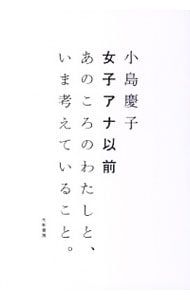 小島慶子
女子アナ以前
あのころのわたしと、
いま考えていること。
大和書房